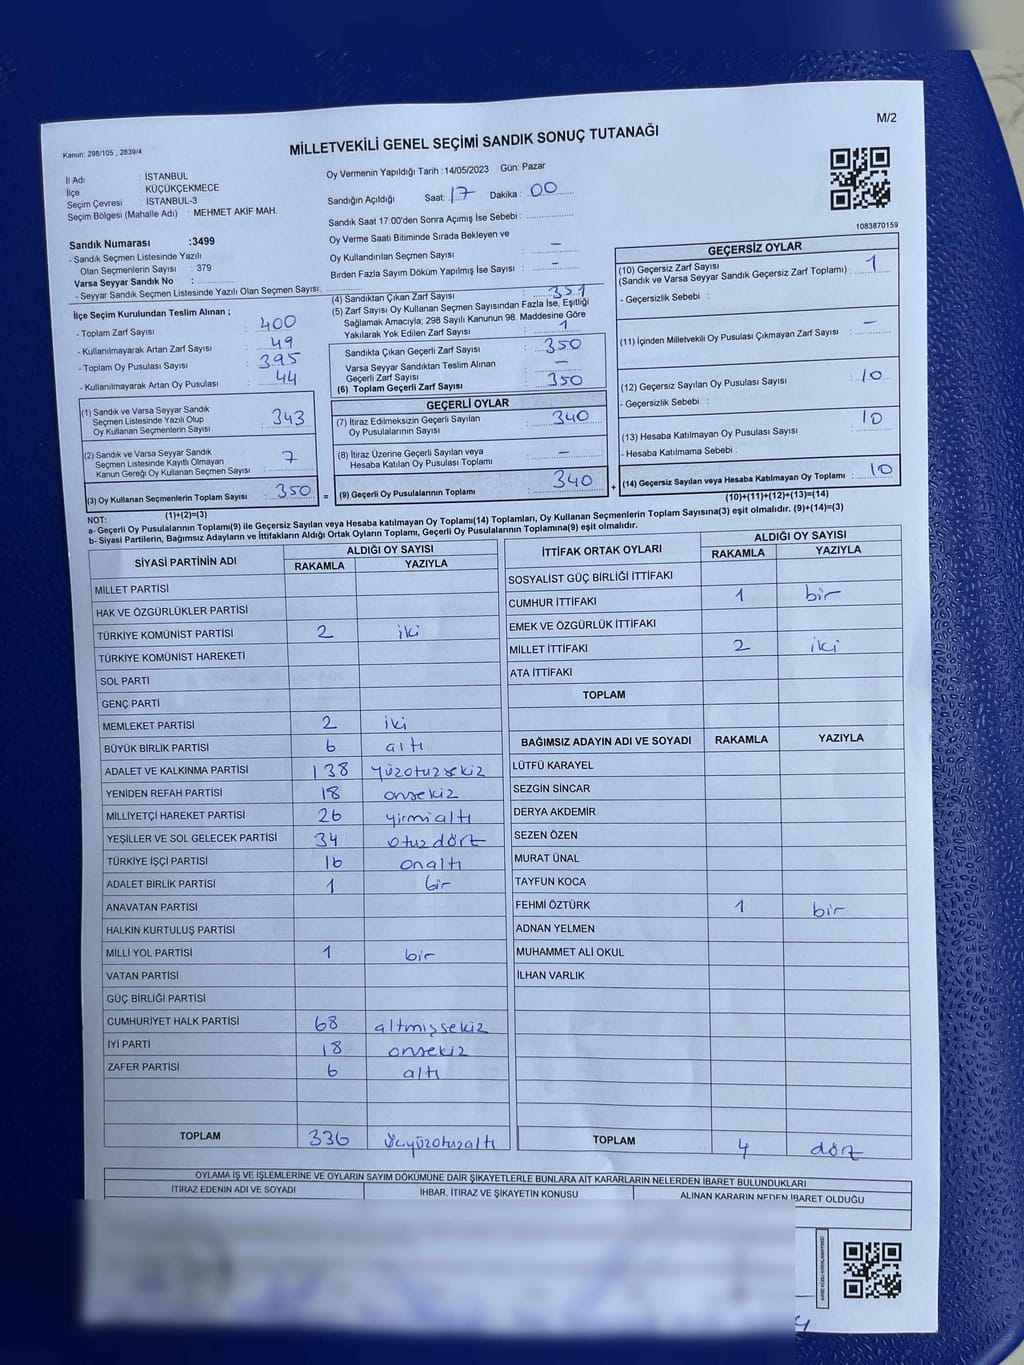 M/2
Kanun: 298/105 , 2839/4
MİLLETVEKİLİ GENEL SEÇİMİ SANDIK SONUÇ TUTANAĞI
İl Adı : İSTANBUL
İlçe : KÜÇÜKÇEKMECE
Seçim Çevresi : İSTANBUL-3
Seçim Bölgesi (Mahalle Adı) : MEHMET AKİF MAH.
Oy Vermenin Yapıldığı Tarih :14/05/2023 Gün: Pazar
Sandığın Açıldığı Saat: 17 Dakika : 00
Sandık Saat 17:00'den Sonra Açımış İse Sebebi :
Oy Verme Saati Bitiminde Sırada Bekleyen ve
Oy Kullandırılan Seçmen Sayısı : –
Birden Fazla Sayım Döküm Yapılmış İse Sayısı : -
1083870159
Sandık Numarası :3499
- Sandık Seçmen Listesinde Yazılı
Olan Seçmenlerin Sayısı : 379
Varsa Seyyar Sandık No :
- Seyyar Sandık Seçmen Listesinde Yazılı Olan Seçmen Sayısı:
İlçe Seçim Kurulundan Teslim Alınan ;
- Toplam Zarf Sayısı : 400
- Kullanılmayarak Artan Zarf Sayısı : 49
- Toplam Oy Pusulası Sayısı : 395
- Kullanılmayarak Artan Oy Pusulası : 44
(1) Sandık ve Varsa Seyyar Sandık
Seçmen Listesinde Yazılı Olup
Oy Kullanan Seçmenlerin Sayısı : 343
(2) Sandık ve Varsa Seyyar Sandık
Seçmen Listesinde Kayıtlı Olmayan
Kanun Gereği Oy Kullanan Seçmen Sayısı : 7
(3) Oy Kullanan Seçmenlerin Toplam Sayısı : 350 =
(1)+(2)=(3)
(4) Sandıktan Çıkan Zarf Sayısı : 351
(5) Zarf Sayısı Oy Kullanan Seçmen Sayısından Fazla İse, Eşitliği
Sağlamak Amacıyla, 298 Sayılı Kanunun 98. Maddesine Göre
Yakılarak Yok Edilen Zarf Sayısı : 1
Sandıkta Çıkan Geçerli Zarf Sayısı : 350
Varsa Seyyar Sandıktan Teslim Alınan
Geçerli Zarf Sayısı : –
(6) Toplam Geçerli Zarf Sayısı : 350
GEÇERLİ OYLAR
(7) İtiraz Edilmeksizin Geçerli Sayılan
Oy Pusulalarının Sayısı : 340
(8) İtiraz Üzerine Geçerli Sayılan veya
Hesaba Katılan Oy Pusulası Toplamı : –
(9) Geçerli Oy Pusulalarının Toplamı : 340 +
GEÇERSİZ OYLAR
(10) Geçersiz Zarf Sayısı
(Sandık ve Varsa Seyyar Sandık Geçersiz Zarf Toplamı) : 1
- Geçersizlik Sebebi :
(11) İçinden Milletvekili Oy Pusulası Çıkmayan Zarf Sayısı : –
(12) Geçersiz Sayılan Oy Pusulası Sayısı : 10
- Geçersizlik Sebebi :
(13) Hesaba Katılmayan Oy Pusulası Sayısı : 10
- Hesaba Katılmama Sebebi :
(14) Geçersiz Sayılan veya Hesaba Katılmayan Oy Toplamı : 10
(10)+(11)+(12)+(13)=(14)
NOT:
a- Geçerli Oy Pusulalarının Toplamı(9) ile Geçersiz Sayılan veya Hesaba katılmayan Oy Toplamı(14) Toplamları, Oy Kullanan Seçmenlerin Toplam Sayısına(3) eşit olmalıdır. (9)+(14)=(3)
b- Siyasi Partilerin, Bağımsız Adayların ve İttifakların Aldığı Ortak Oyların Toplamı, Geçerli Oy Pusulalarının Toplamına(9) eşit olmalıdır.
SİYASİ PARTİNİN ADI ALDIĞI OY SAYISI
RAKAMLA YAZIYLA
MİLLET PARTİSİ
HAK VE ÖZGÜRLÜKLER PARTİSİ
TÜRKİYE KOMÜNİST PARTİSİ 2 iki
TÜRKİYE KOMÜNİST HAREKETİ
SOL PARTİ
GENÇ PARTİ
MEMLEKET PARTİSİ 2 iki
BÜYÜK BİRLİK PARTİSİ 6 altı
ADALET VE KALKINMA PARTİSİ 138 yüzotuzsekiz
YENİDEN REFAH PARTİSİ 18 onsekiz
MİLLİYETÇİ HAREKET PARTİSİ 26 yirmialtı
YEŞİLLER VE SOL GELECEK PARTİSİ 34 otuzdört
TÜRKİYE İŞÇİ PARTİSİ 16 onaltı
ADALET BİRLİK PARTİSİ 1 bir
ANAVATAN PARTİSİ
HALKIN KURTULUŞ PARTİSİ
MİLLİ YOL PARTİSİ 1 bir
VATAN PARTİSİ
GÜÇ BİRLİĞİ PARTİSİ
CUMHURİYET HALK PARTİSİ 68 altmışsekiz
İYİ PARTİ 18 onsekiz
ZAFER PARTİSİ 6 altı
TOPLAM 336 üçyüzotuzaltı
İTTİFAK ORTAK OYLARI ALDIĞI OY SAYISI
RAKAMLA YAZIYLA
SOSYALİST GÜÇ BİRLİĞİ İTTİFAKI
CUMHUR İTTİFAKI 1 bir
EMEK VE ÖZGÜRLÜK İTTİFAKI
MİLLET İTTİFAKI 2 iki
ATA İTTİFAKI
TOPLAM
BAĞIMSIZ ADAYIN ADI VE SOYADI RAKAMLA YAZIYLA
LÜTFÜ KARAYEL
SEZGİN SİNCAR
DERYA AKDEMİR
SEZEN ÖZEN
MURAT ÜNAL
TAYFUN KOCA
FEHMİ ÖZTÜRK 1 bir
ADNAN YELMEN
MUHAMMET ALİ OKUL
İLHAN VARLIK
TOPLAM 4 dört
OYLAMA İŞ VE İŞLEMLERİNE VE OYLARIN SAYIM DÖKÜMÜNE DAİR ŞİKAYETLERLE BUNLARA AİT KARARLARIN NELERDEN İBARET BULUNDUKLARI
İTİRAZ EDENİN ADI VE SOYADI İHBAR, İTİRAZ VE ŞİKAYETİN KONUSU ALINAN KARARIN NEDEN İBARET OLDUĞU